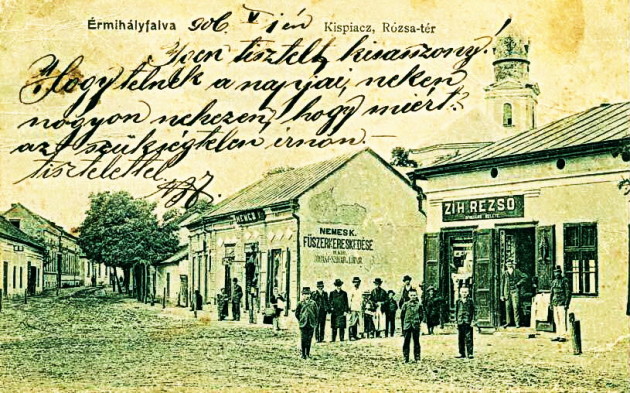 Érmihályfalva
906. V
Kispiacz, Rózsa-tér
Igen tisztelt kisasszony!
Hogy telnek a napjai, nekem
nagyon nehezen, hogy miért?
azt szükségtelen irnom. —
tisztelettel
NEMES K.
FŰSZERKERESKEDÉSE
ZIH REZSŐ
ÜZLETE